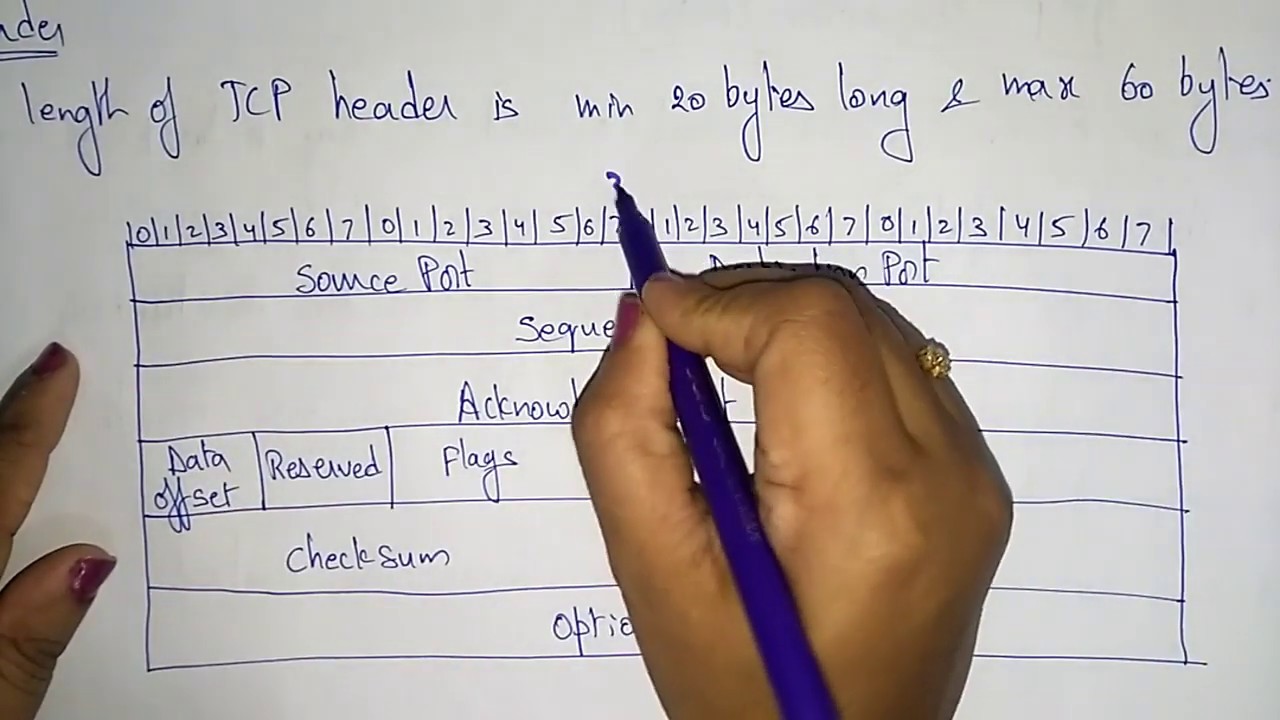 length of TCP header is min 20 bytes long & max 60 bytes
0 1 2 3 4 5 6 7 0 1 2 3 4 5 6 7 1 2 3 4 5 6 7 0 1 2 3 4 5 6 7
Source Port Port
Seque
Acknowl
Data offset Reserved Flags
Checksum
Optio